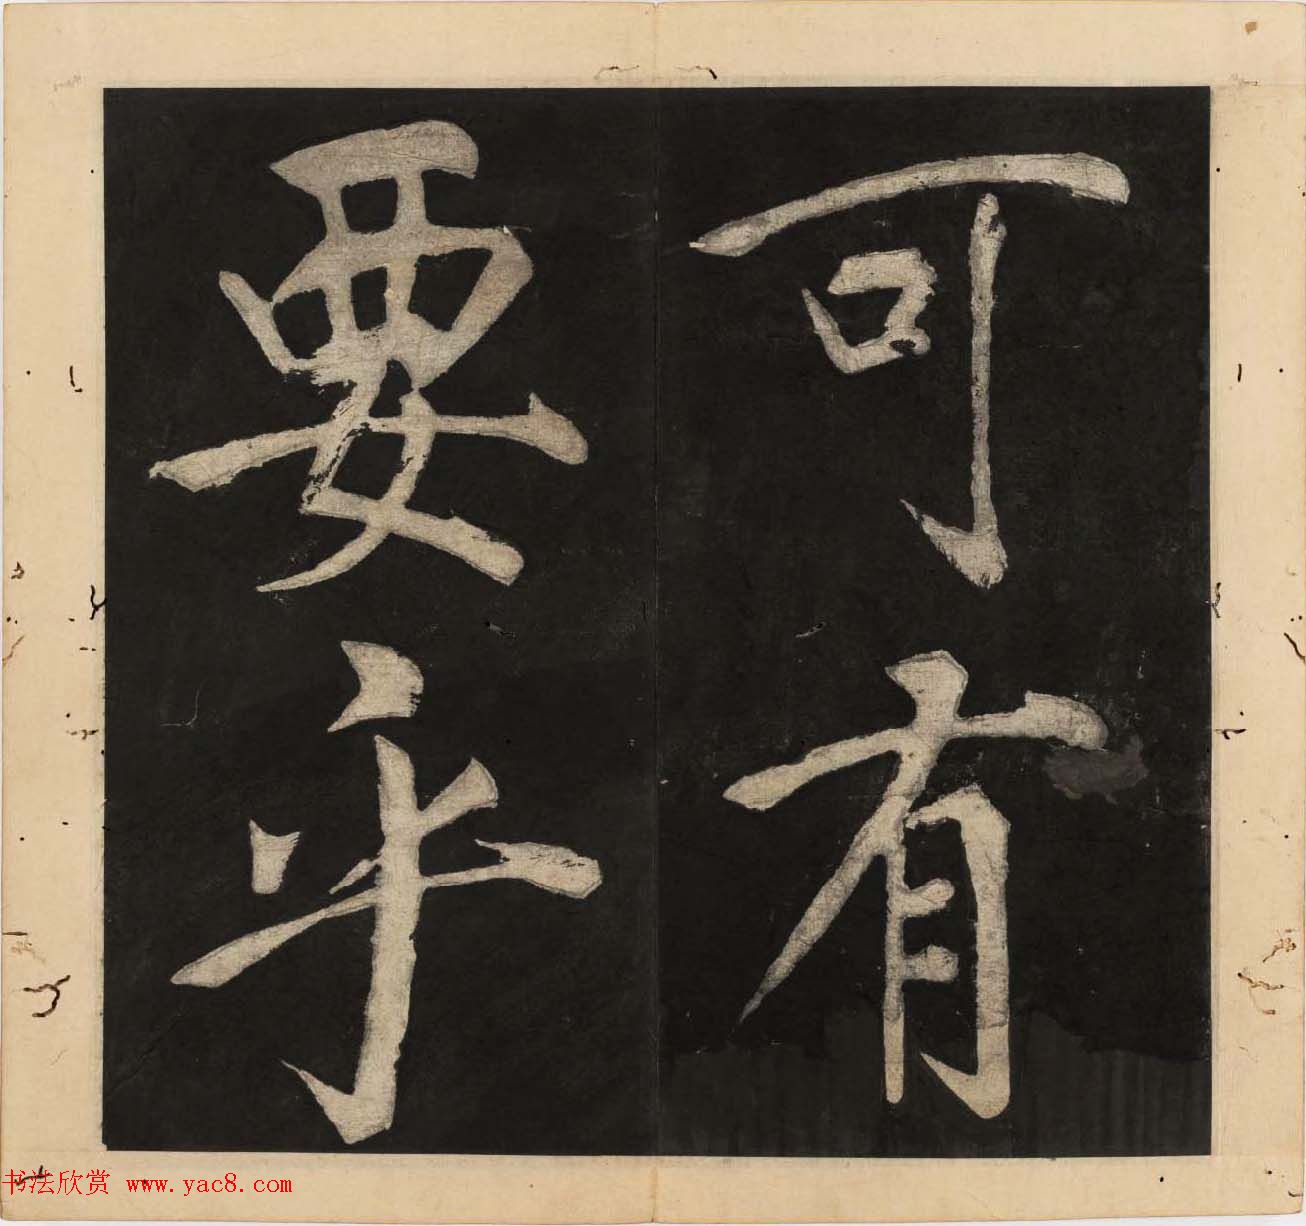 可有
要乎
书法欣赏 www.yac8.com